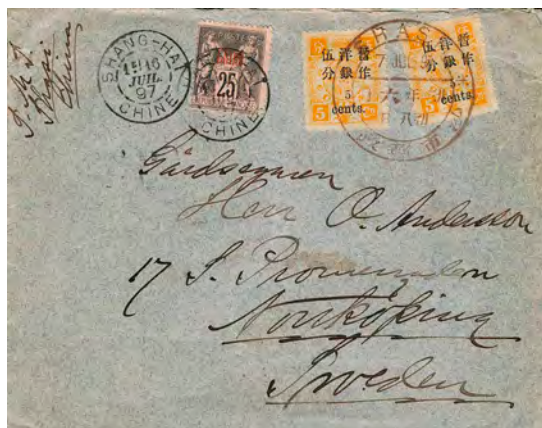 Shgai
China
SHANG-HAI
16
JUIL
97
CHINE
25
CHINE
暫作
洋銀
伍分
5
cents.
5
暫作
洋銀
伍分
5
cents.
5
Herr O. Andersson
17 S. Promenaden
Norrköping
Sweden